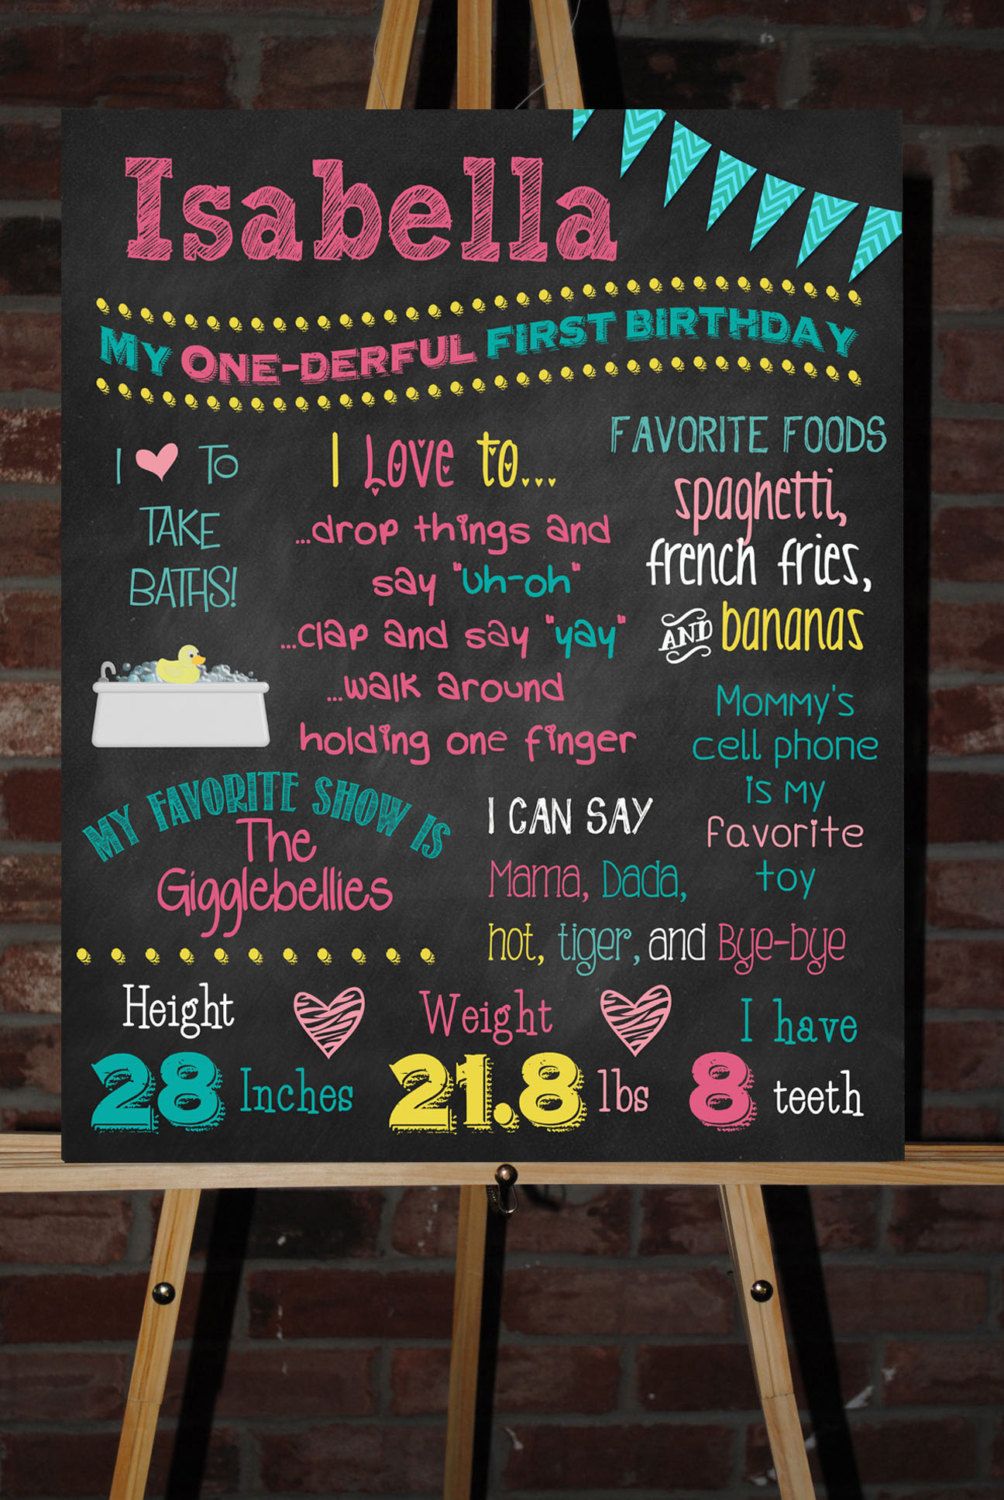 Isabella
MY ONE-DERFUL FIRST BIRTHDAY
I TO
TAKE
BATHS!
I Love to...
...drop things and
say "uh-oh"
...clap and say "yay"
...walk around
holding one finger
FAVORITE FOODS
spaghetti,
french fries,
AND bananas
Mommy's
cell phone
is my
favorite
toy
MY FAVORITE SHOW IS
The
Gigglebellies
I CAN SAY
Mama, Dada,
hot, tiger, and Bye-bye
Height
28 Inches
Weight
21.8 lbs
I have
8 teeth